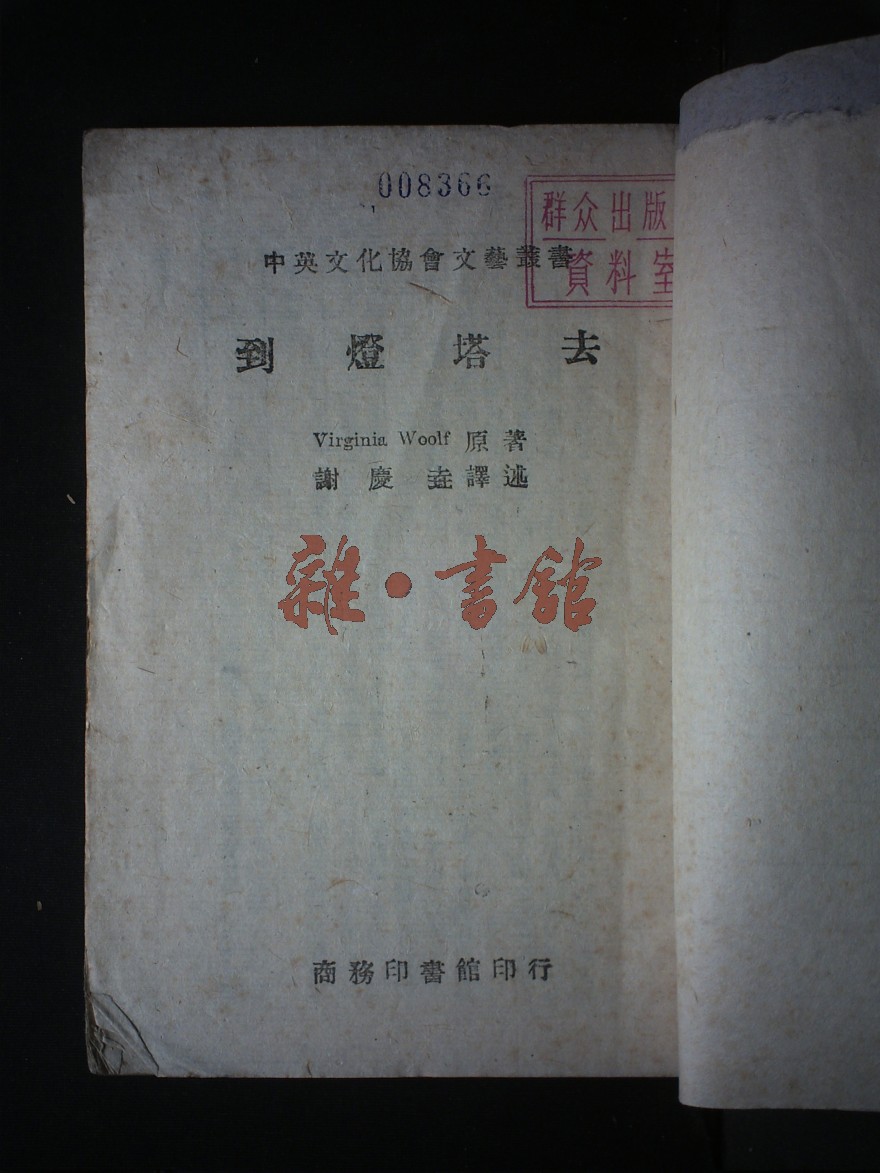 008366
群众出版
資料室
中英文化協會文藝叢書
到燈塔去
Virginia Woolf 原著
謝慶垚譯述
雜·書館
商務印書館印行